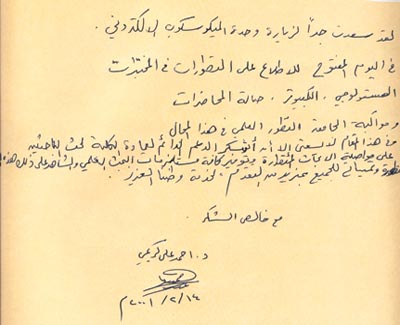 لقد سعدت جداً لزيارة وحدة الميكروسكوب الالكتروني.
في اليوم المفتوح للاطلاع على التطورات في المختبرات
الهستولوجي. الكمبيوتر. صالة المحاضرات
ومواكبة الجامعة التطور العلمي في هذا المجال
من هذا المقام لا يسعني إلا أن أشكر الدعم الدائم لعمادة الكلية لحث الباحثين
على مواصلة الأبحاث المتطورة وتوفير كافة مستلزمات البحث العلمي على ذلك هذه
وتمنياتي للجميع بمزيد من التقدم لخدمة وطننا العزيز.
مع خالص الشكر
د. احمد علي
١٤/٢/٢٠٠١م